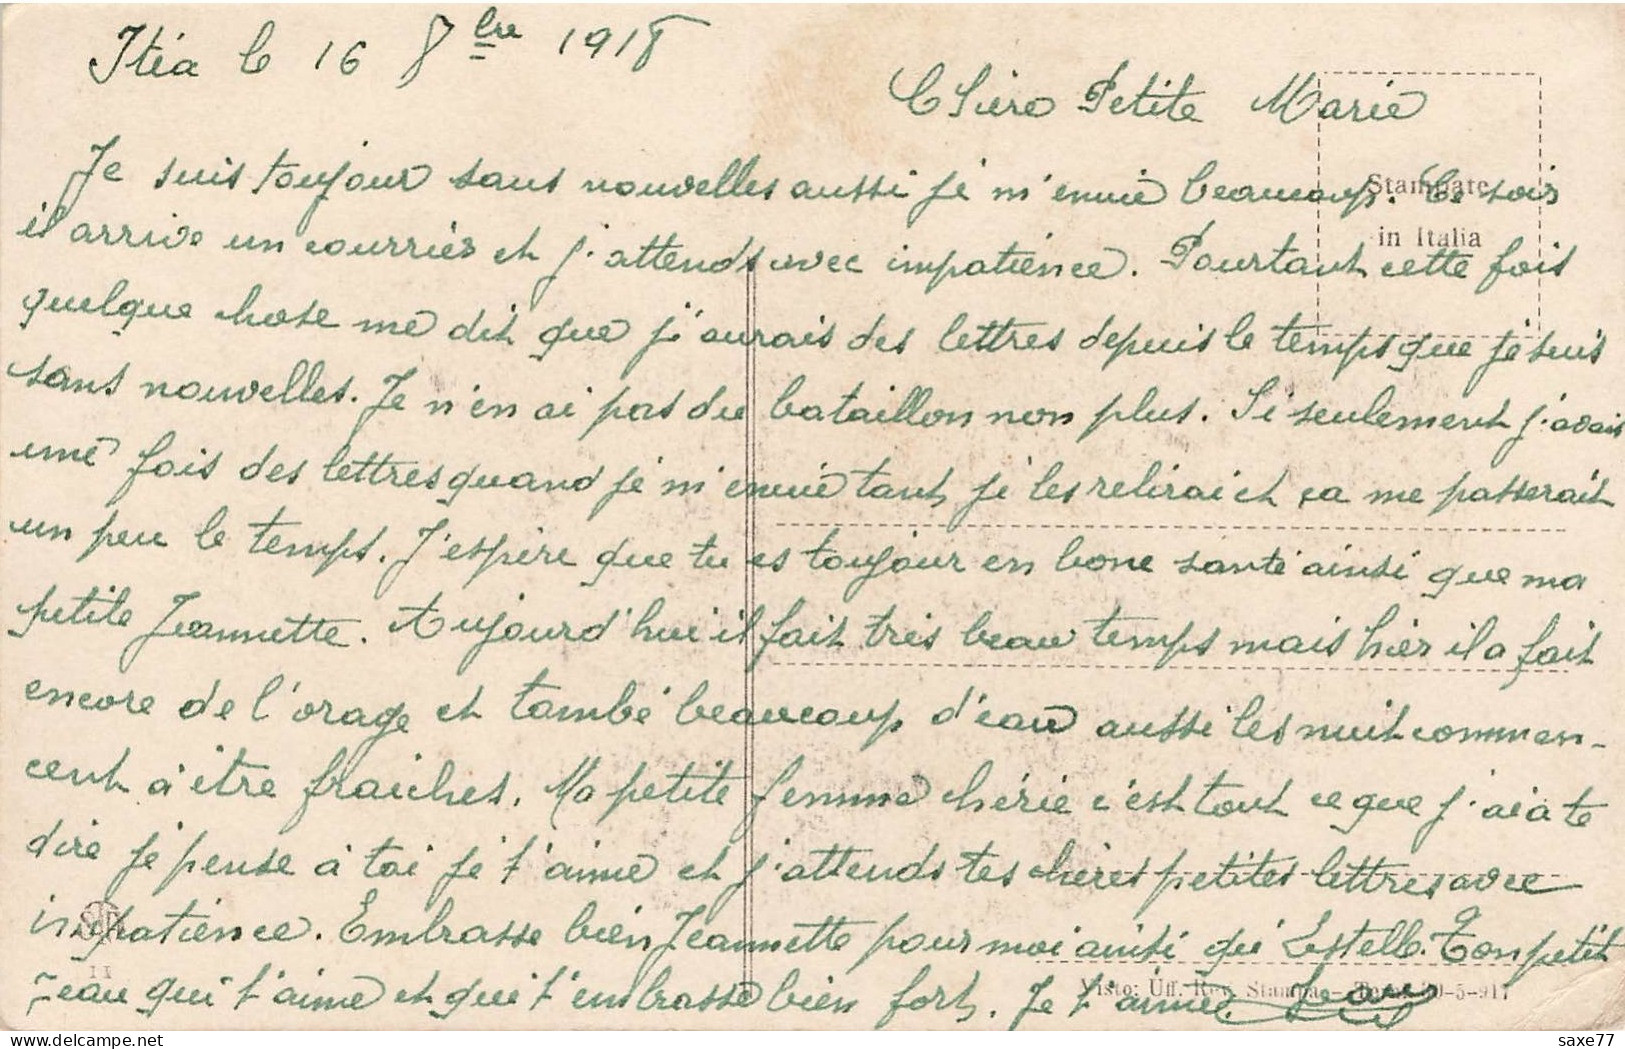 Itéa le 16 8bre 1918
Chère Petite Marie
Je suis toujour sans nouvelles aussi je m'ennuie beaucoup. Ce soir
Stampate
in Italia
il arrive un courrier et j'attends avec impatience. Pourtant cette fois
quelque chose me dit que j'aurais des lettres depuis le temps que je suis
sans nouvelles. Je n'en ai pas du bataillon non plus. Si seulement j'avais
une fois des lettres quand je m'ennuie tant, je les relirai et ça me passerait
un peu le temps. J'espère que tu es toujour en bone santé ainsi que ma
petite Jeannette. Aujourd'hui il fait très beau temps mais hier il a fait
encore de l'orage et tombé beaucoup d'eau aussi les nuit commen-
cent à être fraiches. Ma petite femme chérie c'est tout ce que j'ai a te
dire je pense à toi je t'aime et j'attends tes chères petites lettres avec
impatience. Embrasse bien Jeannette pour moi ainsi qu'Estelle. Ton petit
11
Jean qui t'aime et qui t'embrasse bien fort. Je t'aime. Jean
Visto: Uff. Rev. Stampa - 5-917
saxe77